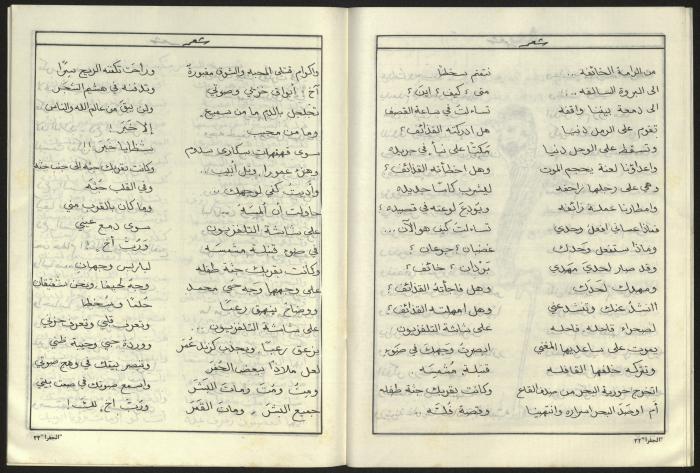 شعر
من الرامة الخائفه ...
الى البروة السالفه ...
الى دمعة بيننا واقفه
تقوم على الرمل دنيا
وتسقط على الوحل دنيا
واعداؤنا لعنة بحجم الموت
وهي على رجلها زاحفه
وامطارنا عملة زائفه
فماذا عساني افعل وحدي
وماذا ستفعل وحدك
وقد صار لحدي مهدي
ومهدك لحدك
انشد عنك وتنشد عني
لصحراء قاحله. قاحله
يموت على ساعديها المغني
وتتركه خلفها القافله
اتخرج حورية البحر من هذه القاع
أم اوصد البحر اسراره وانتهينا
نتقم سخطنا
متى؟ كيف؟ اين؟
تساءلت في ساعة القصف
هل ادركته القذائف؟
مكبا على نبأ في جريده
وهل اخطأته القذائف؟
ليشرب كاسا جديده
ويودع لوعته في قصيده؟
تساءلت كيف هو الآن...
غضبان؟ جوعان؟
بردان؟ خائف؟
وهل فاجأته القذائف؟
وهل امهلته القذائف؟
على شاشة التلفزيون
ابصرت وجهك في صور
قنبلة. مشمسه ..
وكانت بقربك جثة طفله
وقصة فله ...
"الجفرا" ٢٢
شعر
واكوام قتلى المحبه والشوق مقبورة
آخ! ابواق حزني وصوتي
تجلجل بالدم ما من سميع.
وما من مجيب
سوى قهقهات سكارى سدوم
وهزء عمورا. وتل أبيب...
وأذيت كفي لوجهك ...
حاولت أن ألمسه
على شاشة التلفزيون
في ضوء قنبلة مشمسه
وكانت بقربك جثة طفله
على وجهها وجه حي محمد
ووضاح ينهق رعبا
على شاشة التلفزيون ...
يزعق رعبا. ويجذب كزند عمر
لعل ملاذا ببعض الحفر
ومت ومت ومات البشر
جميع البشر. ومات القمر
وراحت تكفنه الريح سرا
وتدفنه في هشيم الشجر
ولن يبق من عالم الله والناس
إلا خبر!
شظايا خبر!!
وكانت بقربك جثه الى جنب جثه
وفي القلب جثه
وما كان بالقرب مني
سوى دمع عيني
ورب آخ!
لباريس وجهان
وجه لطيفا. ونحن شقيقان
حلما وسخطا
وتعرف قلبي وتعرف حزني
ووردة حبي وخيبة ظني
وتبصر بيتك في وهج صوتي
واسمع صوتك في صمت بيتي
ورب أخ. لك..
"الجفرا" ٢٣